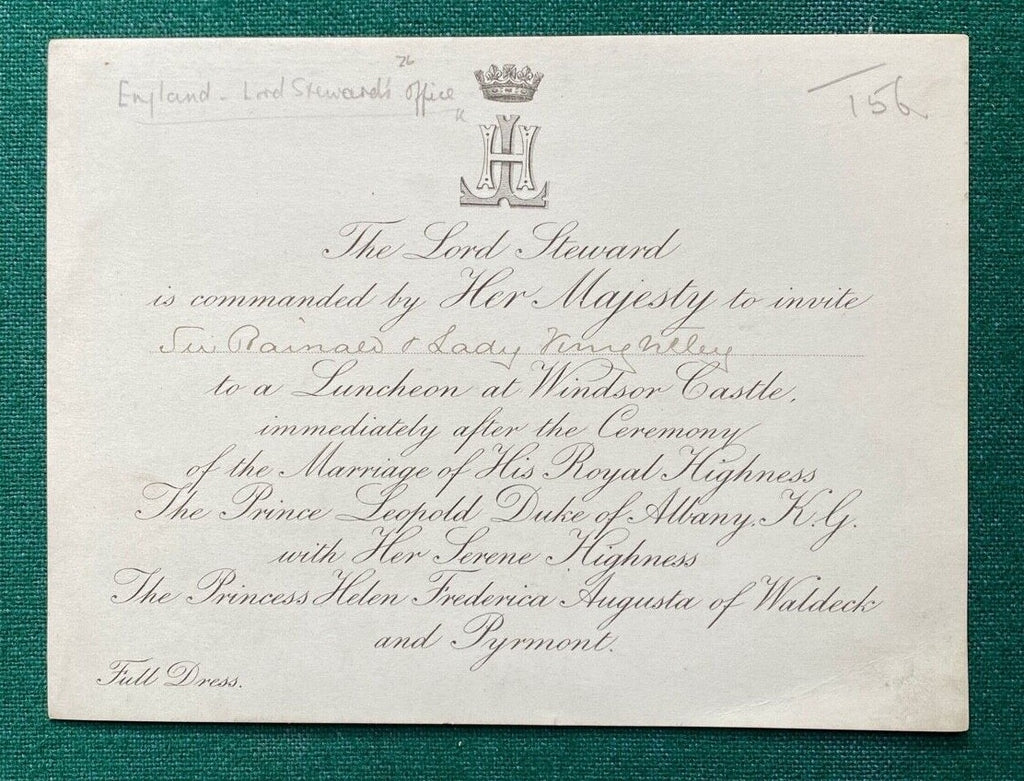 England - Lord Steward's Office
156
LH
The Lord Steward
is commanded by Her Majesty to invite
Sir Rainald & Lady Knightley
to a Luncheon at Windsor Castle,
immediately after the Ceremony
of the Marriage of His Royal Highness
The Prince Leopold Duke of Albany, K.G.
with Her Serene Highness
The Princess Helen Frederica Augusta of Waldeck
and Pyrmont.
Full Dress.